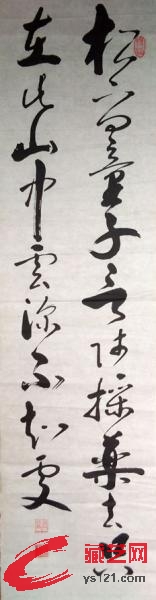 松下問童子言師採藥去只
在此山中雲深不知處
藏艺网
ys121.com